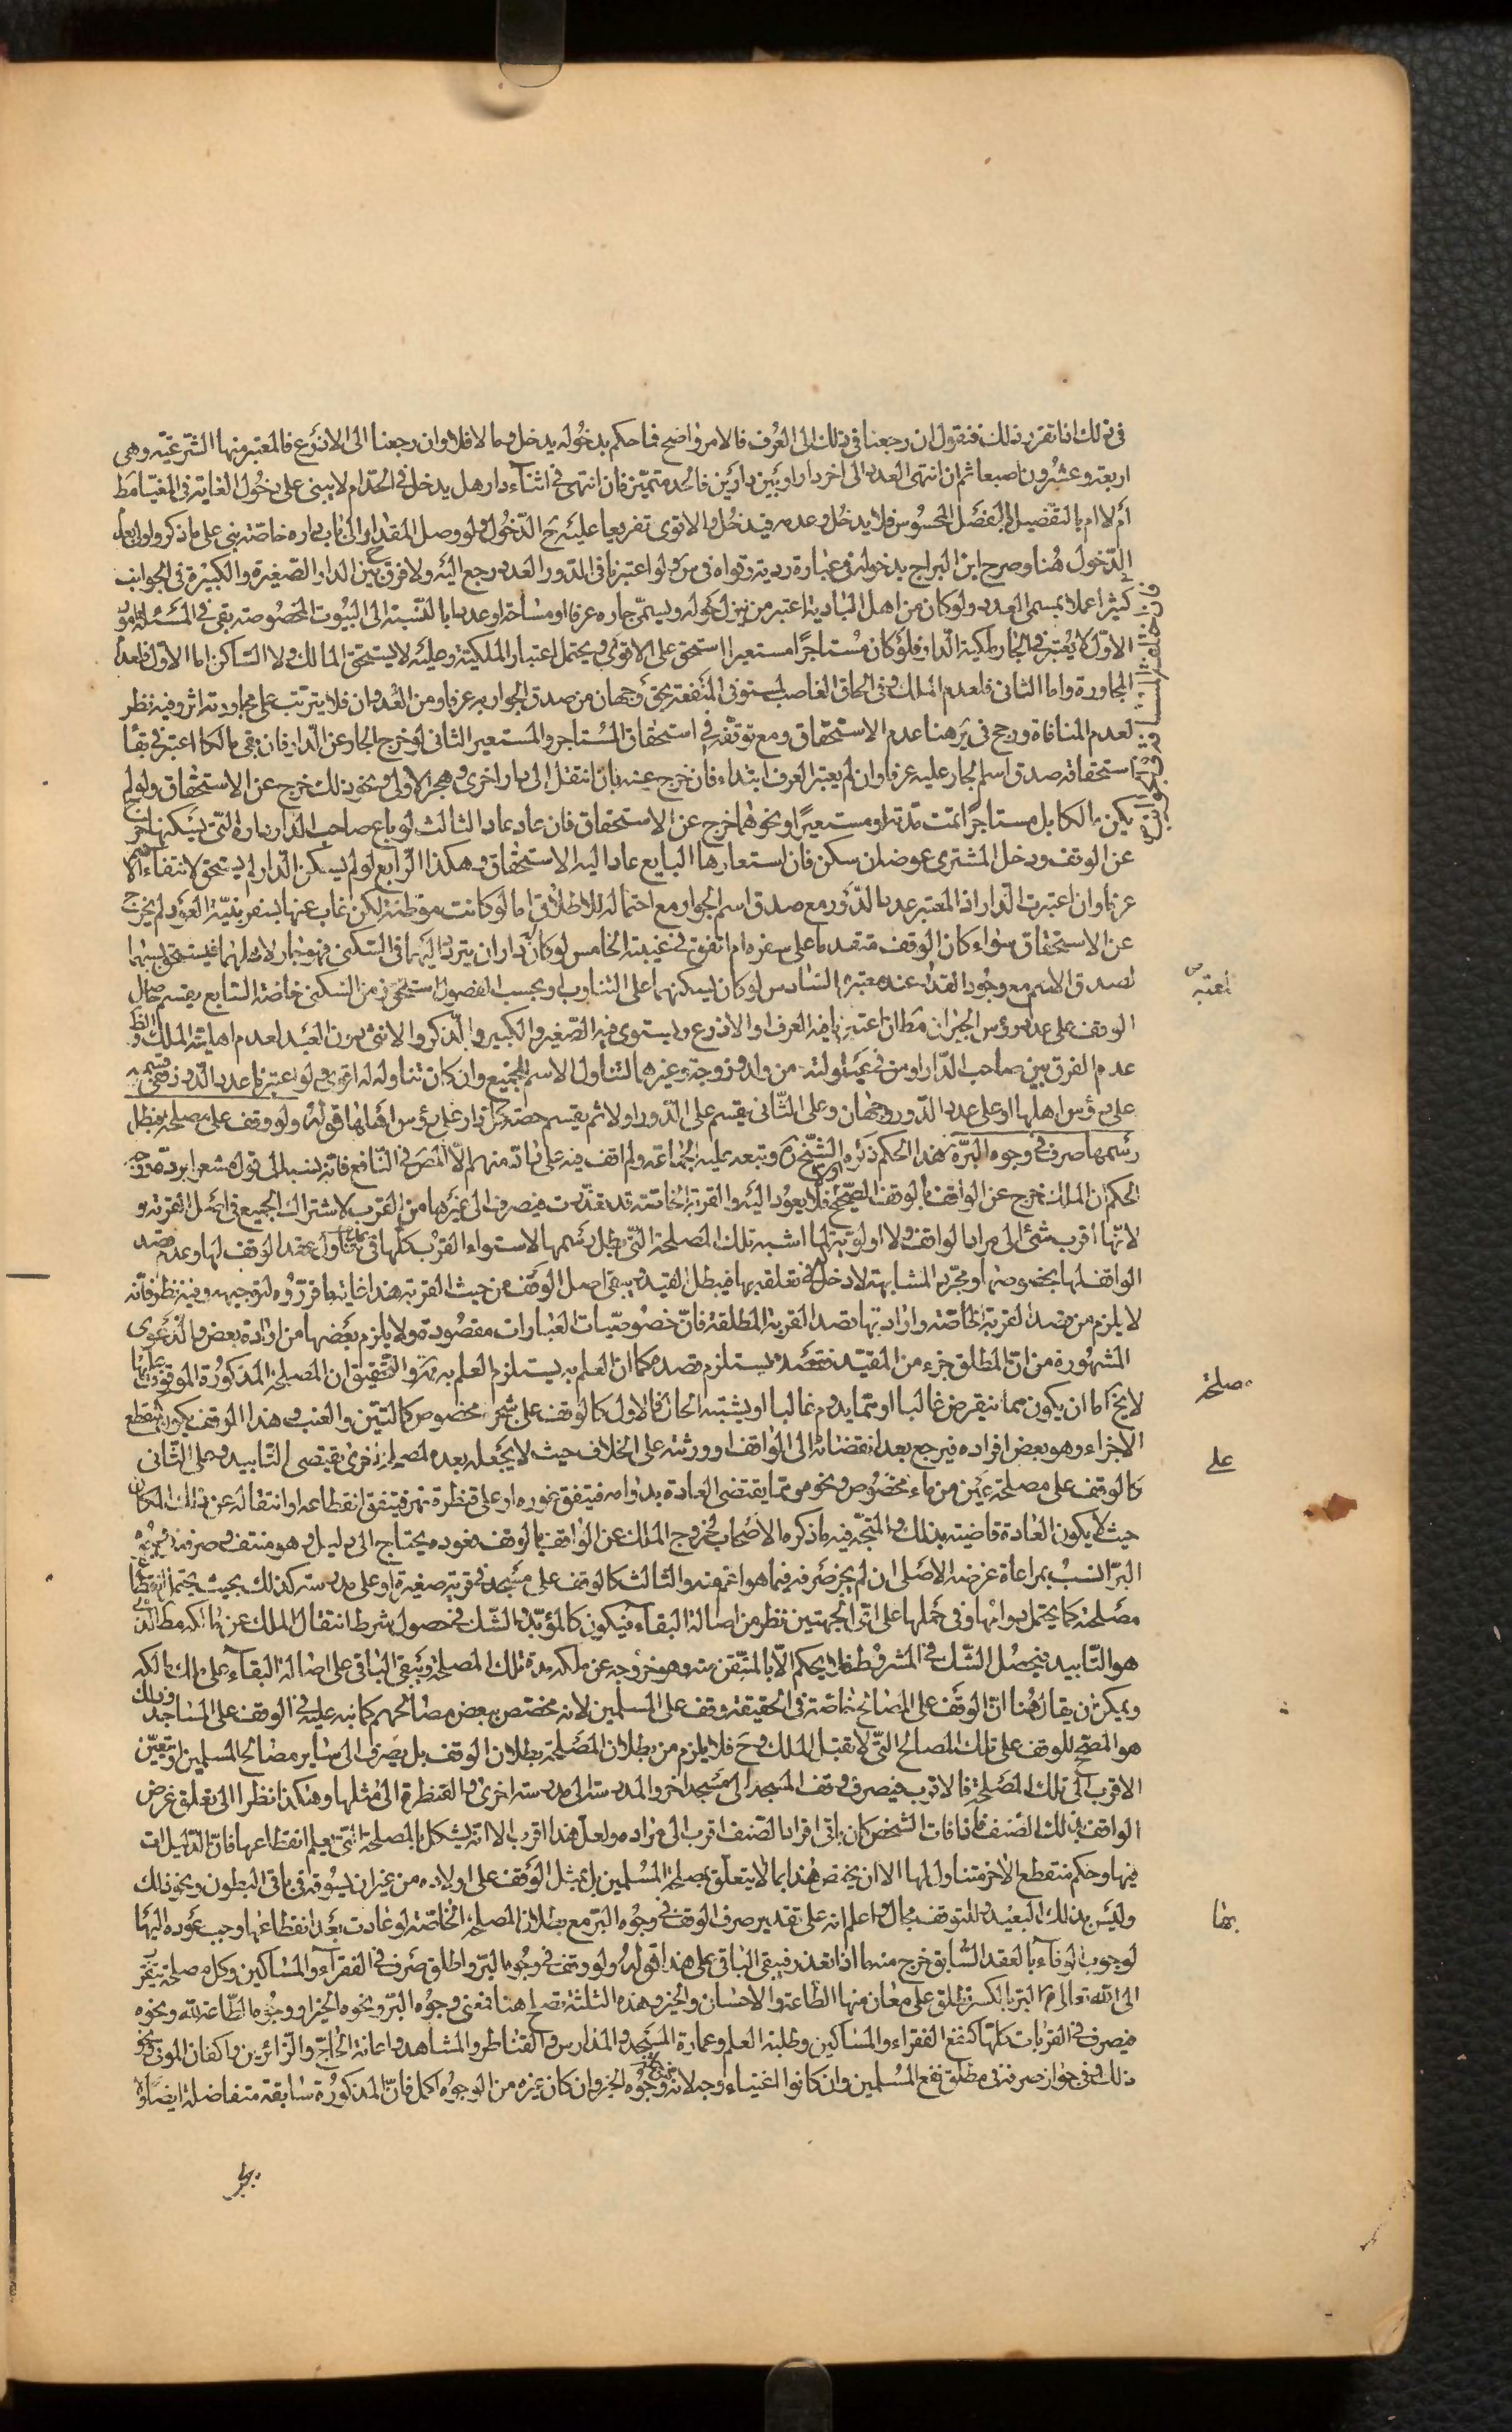 في ذلك اذا تقرر ذلك فنقول ان رجعنا في ذلك الى العرف فالامر واضح فما حكم بدخوله يدخل وما لا فلا وان رجعنا الى الاذرع فالمعتبر منها الشرعية وهي
اربعة وعشرون اصبعا ثم ان انتهى العدد الى اخر دار او بين دارين فالحد متميز فان انتهى في اثناء دار هل يدخل في الحد ام لا يبنى على دخول الغاية في المغيا مط
ام لا ام بالتفصيل بالمفصل المحسوس فلا يدخل وعدمه فيدخل والاقوى تفريعا عليه ح الدخول ولو وصل المقدار الى باب داره خاصة بني على ما ذكر واولى بعدم
الدخول هنا وصرح ابن البراج بدخوله في عبارة ردية وقواه في س ولو اعتبرنا في الدور العدد رجع اليه ولا فرق ح بين الدار الصغيرة والكبيرة في الجوانب
كثيرا عملا بمسمى العدد ولو كان من اهل البادية اعتبر من ينزل حوله ويسمى جاره عرفا او مساحة او عددا بالنسبة الى البيوت المخصوصة بقي في المسئلة امور
الاول لا يعتبر في الجار ملكية الدار فلو كان مستاجرا او مستعيرا استحق على الاقوى ويحتمل اعتبار الملكية وعليه لا يستحق المالك ولا الساكن اما الاول فلعدم
المجاورة واما الثاني فلعدم الملك وفي الحاق الغاصب المستوفي المنفعة بحق وجهان من صدق الجوار به عرفا ومن العدوان فلا يترتب على مجاورته اثر وفيه نظر
لعدم المنافاة ورجح في ير هنا عدم الاستحقاق ومع توقفه في استحقاق المستاجر والمستعير الثاني لو خرج الجار عن الدار فان بقي مالكا اعتبر في بقاء
استحقاقه صدق اسم الجار عليه عرفا وان لم يعتبر العرف ابتداء فان خرج عنه بان انتقل الى دار اخرى وهجر الاولى ونحو ذلك خرج عن الاستحقاق ولو لم
يكن مالكا بل مستاجرا تمت مدته او مستعيرا ونحوهما خرج عن الاستحقاق فان عاد عاد الثالث لو باع صاحب الدار داره التي يسكنها خرج
عن الوقف ودخل المشتري عوضه ان سكن فان استعارها البايع عاد اليه الاستحقاق وهكذا الرابع لو لم يسكن الدار لم يستحق لانتفاء الاسم
عرفا وان اعتبرت الدار اذ المعتبر عدد الدور مع صدق اسم الجوار مع احتماله للاطلاق اما لو كانت موطنه لكن غاب عنها لسفر بنية العود لم يخرج
عن الاستحقاق سواء كان الوقف متقدما على سفره ام اتفق في غيبته الخامس لو كان له داران يتردد اليهما في السكنى فهو جار لاهلهما فيستحق بسببهما
لصدق الاسم مع وجود القدر عند معتبره السادس لو كان يسكنهما على التناوب او بحسب الفصول استحق زمن السكنى خاصة السابع يقسم حاصل
الوقف على عدد رؤس الجيران مط ان اعتبرنا فيه العرف او الاذرع ويستوي فيه الصغير والكبير والذكر والانثى دون العبد لعدم اهلية الملك والظ
عدم الفرق بين صاحب الدار ومن في عيلولته من ولد وزوجة وغيرهما لتناول الاسم للجميع وان كان تناوله له اقوى ولو اعتبرنا عدد الدور ففي قسمته
على رؤس اهلها او على عدد الدور وجهان وعلى الثاني يقسم على الدور اولا ثم يقسم حصة كل دار على رؤس اهلها قوله ولو وقف على مصلحة فبطل
رسمها صرف في وجوه البر هذا الحكم ذكره الشيخ ره وتبعه عليه الجماعة ولم اقف فيه على راد منهم الا المص في النافع فانه نسبه الى قول مشعرا برده ووجه
الحكم ان الملك خرج عن الواقف بالوقف الصحيح اولا فلا يعود اليه والقربة الخاصة قد تعذرت فيصرف الى غيرها من القرب لاشتراك الجميع في اصل القربة و
لانها اقرب شئ الى مراد الواقف ولا اولوية لما اشبه تلك المصلحة التي بطل رسمها لاستواء القرب كلها في عدم تناول عقد الوقف لها وعدم قصد
الواقف لها بخصوصها ومجرد المشابهة لا دخل له في تعلقه بها فيبطل القيد ويبقى اصل الوقف من حيث القربة هذا غاية ما قرروه لتوجيهه وفيه نظر فانه
لا يلزم من قصد القربة الخاصة وارادتها قصد القربة المطلقة فان خصوصيات العبارات مقصودة ولا يلزم بعضها من ارادة بعض والدعوى
المشهورة من ان المطلق جزء من المقيد فقصده يستلزم قصده كما ان العلم به يستلزم العلم به والتحقيق ان المصلحة المذكورة الموقوف عليها
لا يخ اما ان يكون مما ينقرض غالبا او مما يدوم غالبا او يشتبه الحال فالاول كالوقف على شجر مخصوص كالتين والعنب وهذا الوقف يكون منقطع
الاخر او هو بعض افراده فيرجع بعد انقضائه الى الواقف او ورثته على الخلاف حيث لا يجعله بعده لمصلحة اخرى تقتضي التابيد وعلى الثاني
كالوقف على مصلحة عين من ماء مخصوص ونحوه مما يقتضي العادة بدوامه فيتفق غوره او على قنطرة نهر فيتفق انقطاعه او انتقاله عن ذلك المكان
حيث لا يكون العادة قاضية بذلك والمتجه فيه ما ذكره الاصحاب لخروج الملك عن الواقف بالوقف فعوده يحتاج الى دليل وهو منتف وصرفه في وجوه
البر انسب بمراعاة غرضه الاصلي ان لم يجز صرفه فيما هو اعم منه والثالث كالوقف على مسجد في قرية صغيرة او على مدرسة كذلك بحيث يحتمل انقطاع
مصلحته كما يحتمل دوامها وفي حملها على اي الجهتين نظر من اصالة البقاء فيكون كالمؤبد والشك في حصول شرط انتقال الملك عن مالكه مط الذي
هو التابيد فيحصل الشك في المشروط فلا يحكم الا بالمتيقن منه وهو خروجه عن ملكه مدة تلك المصلحة ويبقى الباقي على اصالة البقاء على ملك مالكه
ويمكن ان يقال هنا ان الوقف على المصالح الخاصة في الحقيقة وقف على المسلمين لانه مختص ببعض مصالحهم كما نبه عليه في الوقف على المساجد وذلك
هو المصحح للوقف على تلك المصالح التي لا تقبل الملك وح فلا يلزم من بطلان المصلحة بطلان الوقف بل يصرف الى ساير مصالح المسلمين او يتعين
الاقرب الى تلك المصلحة فالاقرب فيصرف وقف المسجد الى مسجد اخر والمدرسة الى مدرسة اخرى والقنطرة الى مثلها وهكذا نظرا الى تعلق غرض
الواقف بذلك الصنف فاذا فات الشخص كان باقي افراد الصنف اقرب الى مراده ولعل هذا اقرب الا انه يشكل بالمصلحة التي يعلم انقطاعها فان الدليل ات
فيها وحكم منقطع الاخر متناول لها الا ان يخص هذا بما لا يتعلق بمصلحة المسلمين بل بمثل الوقف على اولاده من غير ان يسوقه في باقي البطون ونحو ذلك
وليس بذلك البعيد وللتوقف مجال واعلم انه على تقدير صرف الوقف في وجوه البر مع بطلان المصلحة الخاصة لو عادت بعد انقطاعها وجب عوده اليها
لوجوب الوفاء بالعقد السابق خرج منه ما اذا تعذر فيبقى الباقي على هذا قوله ولو وقف في وجوه البر واطلق صرف في الفقراء والمساكين وكل مصلحة يتقرب
الى الله تعالى بها البر بالكسر يطلق على معان منها الطاعة والاحسان والخير وهذه الثلثة تصلح هنا فمعنى وجوه البر وجوه الخير او وجوه الطاعة لله ونحوه
فيصرف في القربات كلها كنفع الفقراء والمساكين وطلبة العلم وعمارة المسجد والمدارس والقناطر والمشاهد واعانة الحاج والزائرين واكفان الموتى ونحو
ذلك وفي جواز صرفه في مطلق نفع المسلمين وان كانوا اغنياء وجه لانه من وجوه الخير وان كان غيره من الوجوه اكمل فان المذكورة سابقة متفاضلة ايضا ولا
اعتبر ص
مصلحة
على
بها
يجب